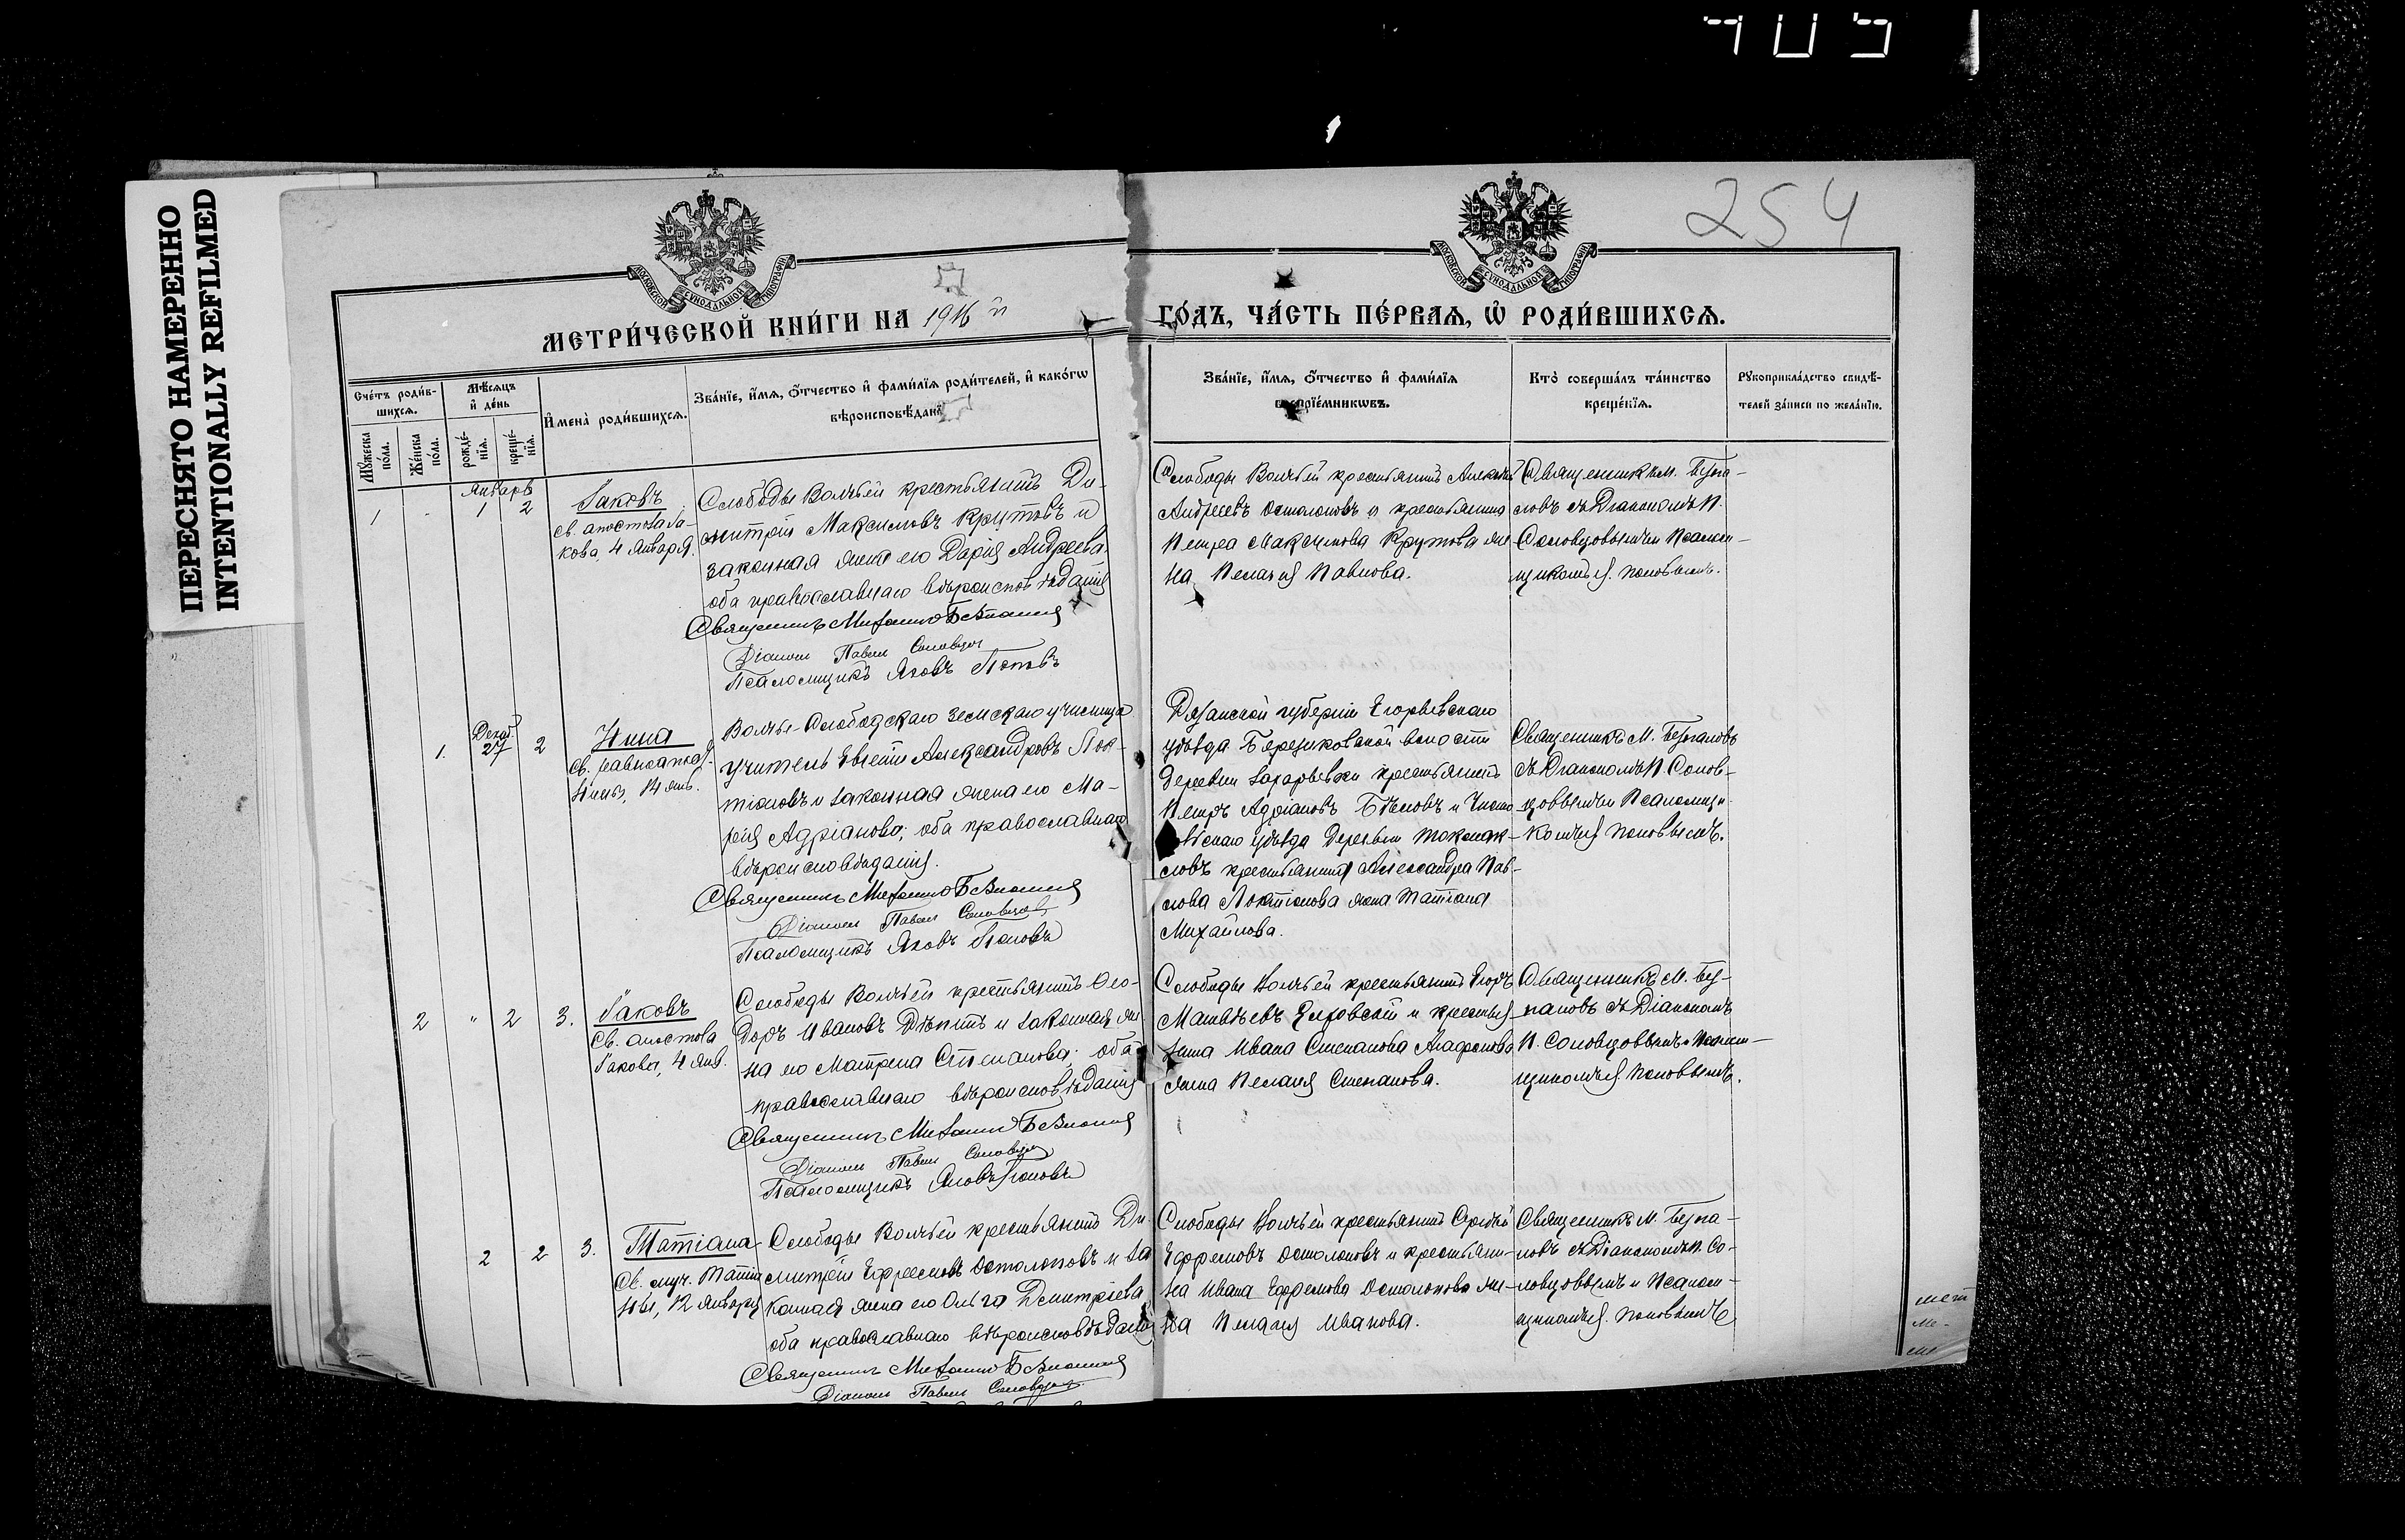 254
ПЕРЕСНЯТО НАМЕРЕННО
INTENTIONALLY REFILMED
МОСКОВСКОЙ СѴНОДАЛЬНОЙ ТИПОГРАФІИ
МОСКОВСКОЙ СѴНОДАЛЬНОЙ ТИПОГРАФІИ
МЕТРИ́ЧЕСКОЙ КНИ́ГИ НА 1916 й
ГО́ДЪ, ЧА́СТЬ ПЕ́РВАѦ, Ѡ҆ РОДИ́ВШИХСѦ.
Сче́тъ роди́в-
шихсѧ.
Мꙋ́жеска по́ла.
Же́нска по́ла.
Мѣ́сѧцъ
и҆ де́нь
рожде́-
нїѧ.
креще́-
нїѧ.
И҆мена̀ роди́вшихсѧ.
Зва́нїе, и҆́мѧ, ѻ҆́тчество и҆ фами́лїѧ роди́телей, и҆ како́гѡ
вѣроисповѣ́данїѧ
Зва́нїе, и҆́мѧ, ѻ҆́тчество и҆ фами́лїѧ
воспрїе́мникѡвъ.
Кто̀ соверша́лъ та́инство
креще́нїѧ.
Рꙋкоприкла́дство свидѣ́-
телей за́писи по жела́нїю.
Январь
1 - 1 2
Іаковъ
св. апостола Іа-
кова, 4 Января.
Слободы Волчьей крестьянинъ Ди-
митрій Максимовъ Крутовъ и
законная жена его Дарія Андреева,
оба православнаго вѣроисповѣданія
Священникъ Михаилъ
Діаконъ Павелъ Соловцовъ
Псаломщикъ Яковъ Поповъ
Слободы Волчьей крестьянинъ Алексѣй
Андреевъ Остолоповъ и крестьянина
Петра Максимова Крутова же-
на Пелагія Павлова.
Священникъ М.
съ Діакономъ П.
Соловцовымъ и Псалом-
щикомъ Я. Поповымъ.
1. Декаб. 27 2
Нина
Св. равноапост.
Нины, 14 янв.
Волчье-Слободскаго земскаго училища
учитель Александровъ Лок-
тіоновъ и законная жена его Ма-
рія Адріанова; оба православнаго
вѣроисповѣданія.
Священникъ Михаилъ
Діаконъ Павелъ Соловцовъ
Псаломщикъ Яковъ Поповъ
Рязанской губерніи Егорьевскаго
уѣзда волости
деревни крестьянинъ
Петръ Адріановъ Бѣловъ и
уѣзда деревни
крестьянина Александра Пав-
лова Локтіонова жена Татіана
Михайлова.
Священникъ М.
съ Діакономъ П. Солов-
цовымъ и Псаломщи-
комъ Я. Поповымъ.
2 " 2 3.
Іаковъ
Св. апостола
Іакова, 4 янв.
Слободы Волчьей крестьянинъ Ѳео-
доръ Ивановъ и законная же-
на его Матрена Степанова; оба
православнаго вѣроисповѣданія
Священникъ Михаилъ
Діаконъ Павелъ Соловцовъ
Псаломщикъ Яковъ Поповъ
Слободы Волчьей крестьянинъ Егоръ
Матвѣевъ и крестья-
нина Ивана Степанова Агафонова
жена Пелагія Степанова.
Священникъ М.
съ Діакономъ
П. Соловцовымъ и Псалом-
щикомъ Я. Поповымъ.
2 2 3.
Татіана
Св. муч. Татіа-
ны, 12 января
Слободы Волчьей крестьянинъ Ди-
митрій Ефремовъ Остолоповъ и за-
конная жена его Ольга Димитріева
оба православнаго вѣроисповѣданія
Священникъ Михаилъ
Діаконъ Павелъ Соловцовъ
Слободы Волчьей крестьянинъ Сергѣй
Ефремовъ Остолоповъ и крестьяни-
на Ивана Ефремова Остолопова же-
на Пелагія Иванова.
Священникъ М.
съ Діакономъ П. Со-
ловцовымъ и Псалом-
щикомъ Я. Поповымъ